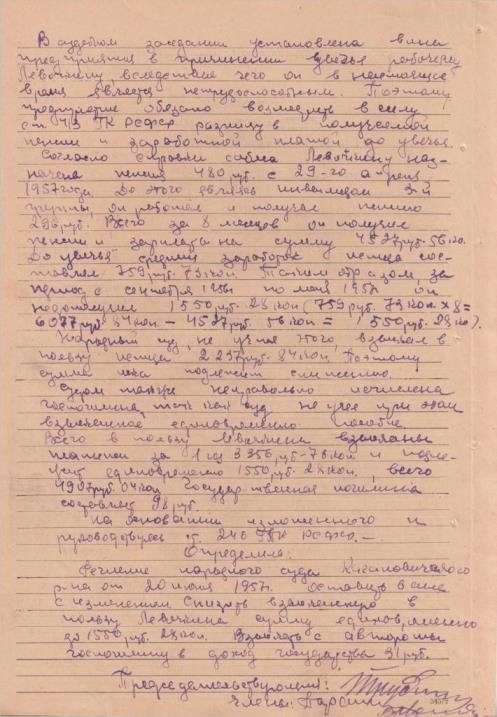 В судебном заседании установлена вина
предприятия в причинении увечья рабочему
Левочкину вследствие чего он в настоящее
время является нетрудоспособным. Поэтому
предприятие обязано возместить в силу
ст. 413 ГК РСФСР разницу в получаемой
пенсии и заработной платой до увечья.
Согласно справки собеса Левочкину наз-
начена пенсия 480 руб. с 29-го апреля
1957 года. До этого являясь инвалидом 3-й
группы, он работал и получал пенсию
296 руб. Всего за 8 месяцев он получил
пенсии и зарплаты на сумму 4527 руб. 56 коп.
До увечья средний заработок истца сос-
тавлял 759 руб. 73 коп. Таким образом за
период с сентября 1956 по май 1957 он
недополучил 1550 руб. 28 коп (759 руб. 73 коп х 8=
6077 руб. 84 коп – 4527 руб. 56 коп = 1550 руб. 28 ко).
Народный суд, не учтя этого, взыскал в
пользу истца 2237 руб. 84 коп. Поэтому
сумма иска подлежит снижению.
Судом также неправильно исчислена
госпошлина, так как суд не учел при этом
взысканное единовременно пособие.
Всего в пользу Левочкина взысканы
платежи за 1 год 3356 руб.-76 коп и
единовременно 1550 руб. 28 коп, всего
4907 руб. 04 коп Государственная пошлина
составляет 98 руб.
На основании изложенного и
руководствуясь ст. 246 ГПК РСФСР. –
Определила:
Решение народного суда Кагановичского
р-на от 20 июня 1957г. оставить в силе
с изменением снизить взысканную в
пользу Левочкина сумму единовременно
до 1550 руб. 28 коп. Взыскать с автороты
госпошлину в доход государства 91 руб.
Председательствующий:
Члены: